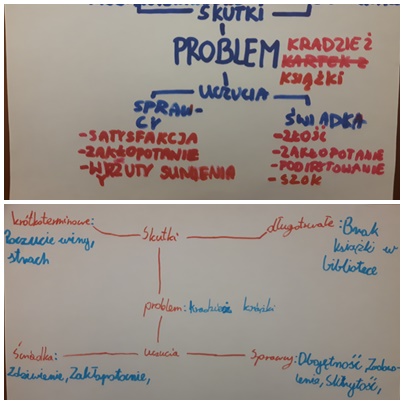 SKUTKI
PROBLEM
KRADZIEŻ
KARTEK Z
KSIĄŻKI
UCZUCIA
SPRAW-
CY
-SATYSFAKCJA
-ZAKŁOPOTANIE
-WYŻUTY SUMIENIA
ŚWIADKA
-ZŁOŚĆ
-ZAKŁOPOTANIE
-PODIRYTOWANIE
-SZOK
krótkoterminowe:
Poczucie winy,
strach
Skutki
długotrwałe: Brak
książki w
bibliotece
problem: Kradzież książki
Świadka:
Zdziwienie, Zakłopotanie,
uczucia
Sprawcy: Obojętność, Zadowo-
lenie, Skrytość,